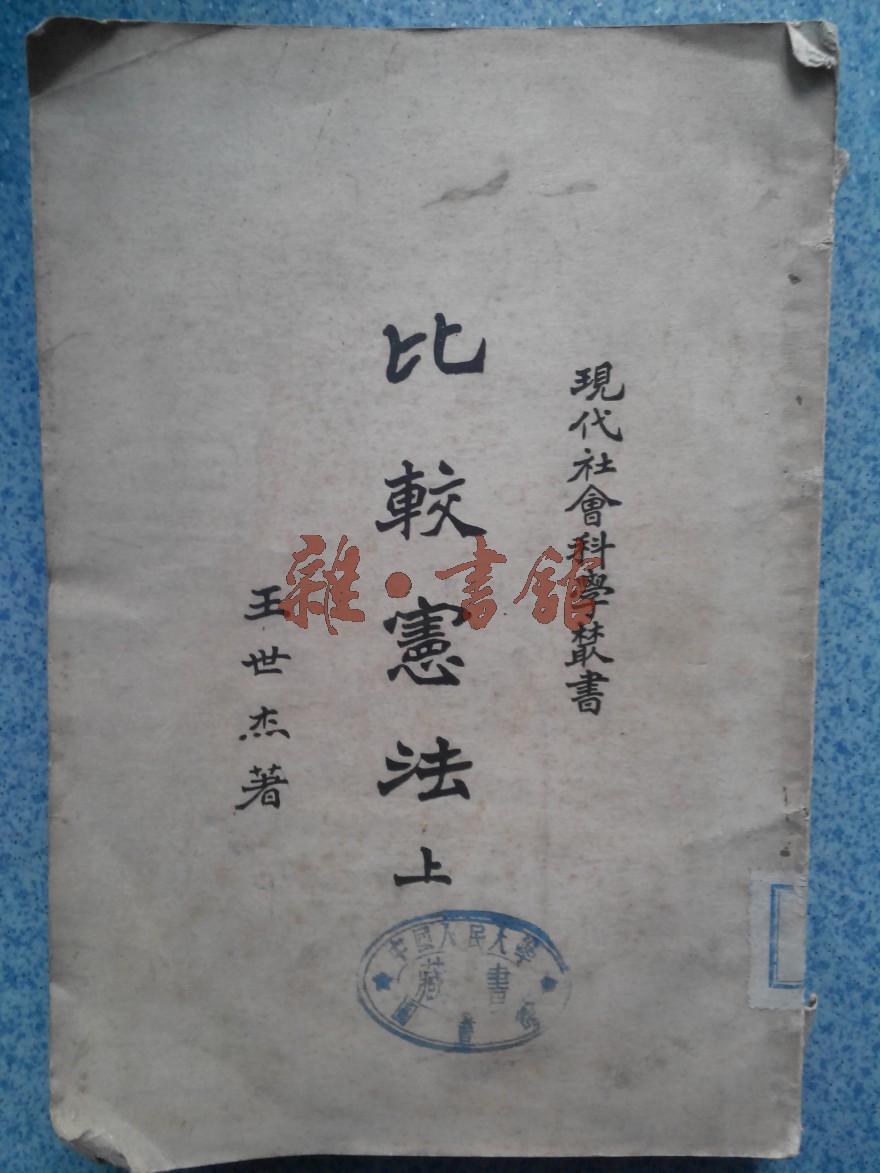 現代社會科學叢書
比較憲法 上
王世杰著
雜·書館
中國人民大學
藏書
圖書館